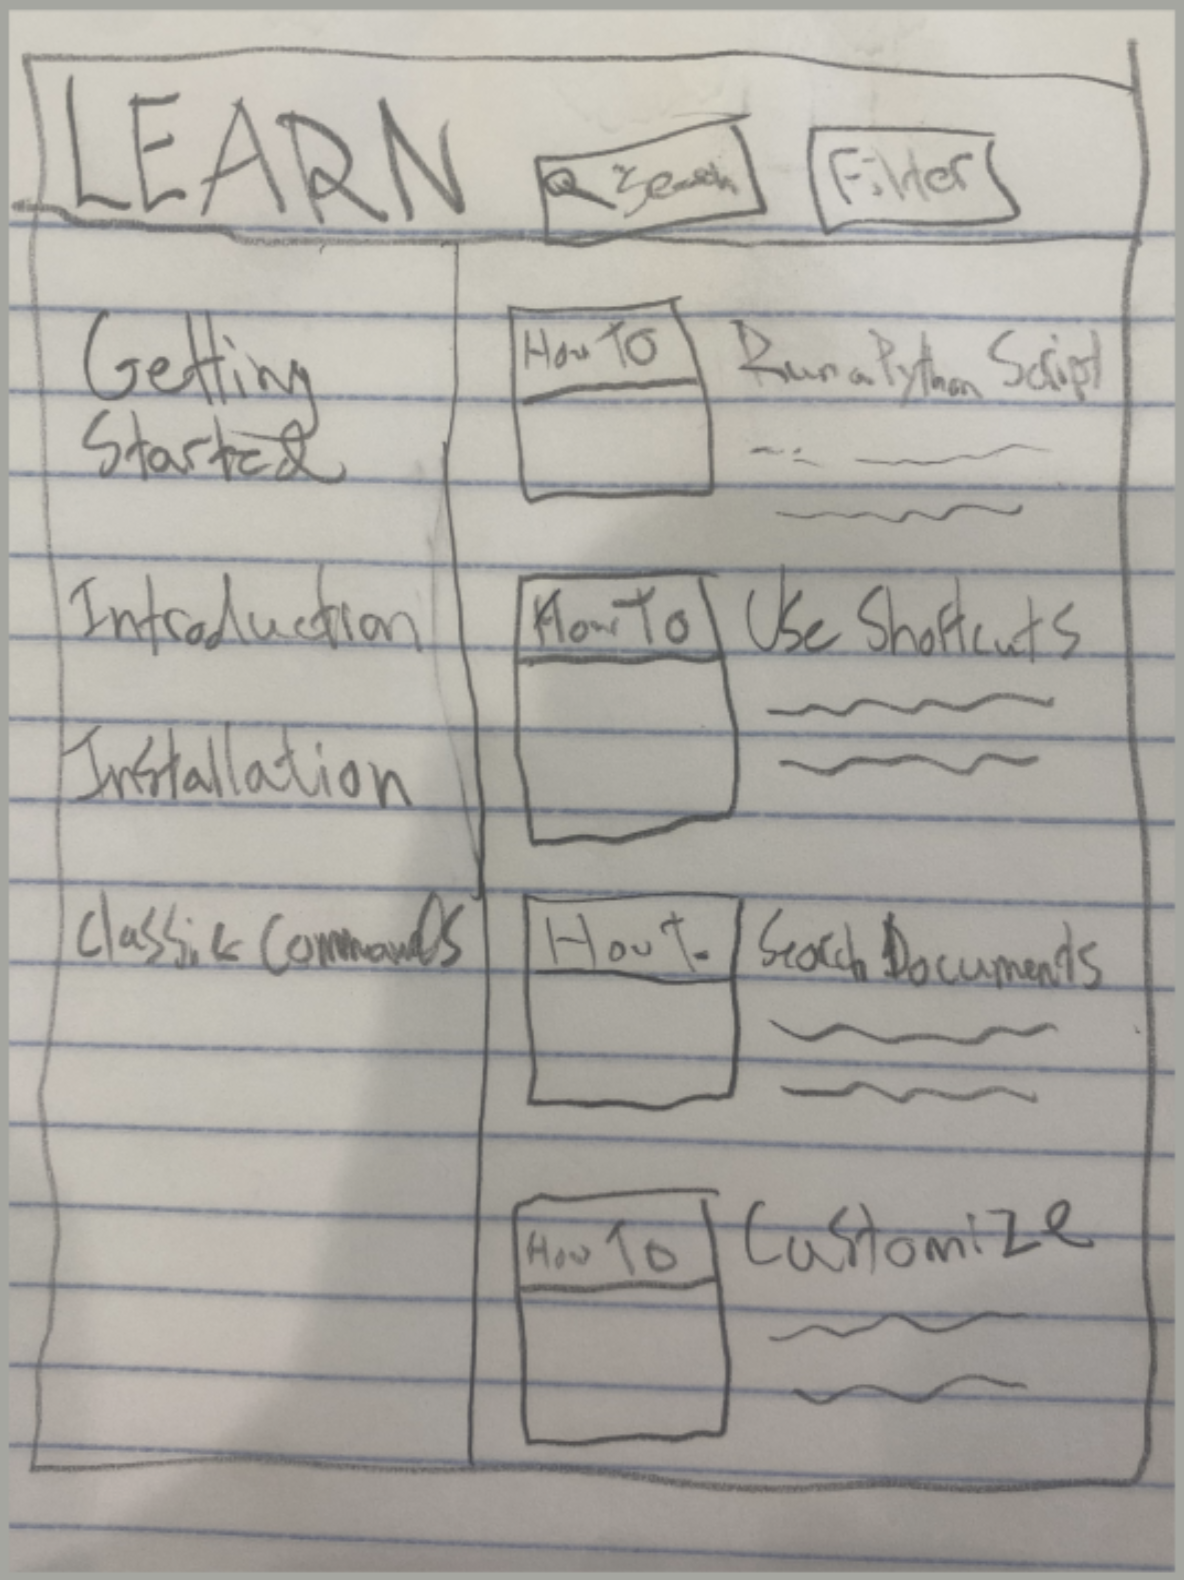 LEARN
Search
Filter
Getting
Started
Introduction
Installation
Classic Commands
How To
Run a Python Script
How To
Use Shortcuts
How To
Search Documents
How To
Customize